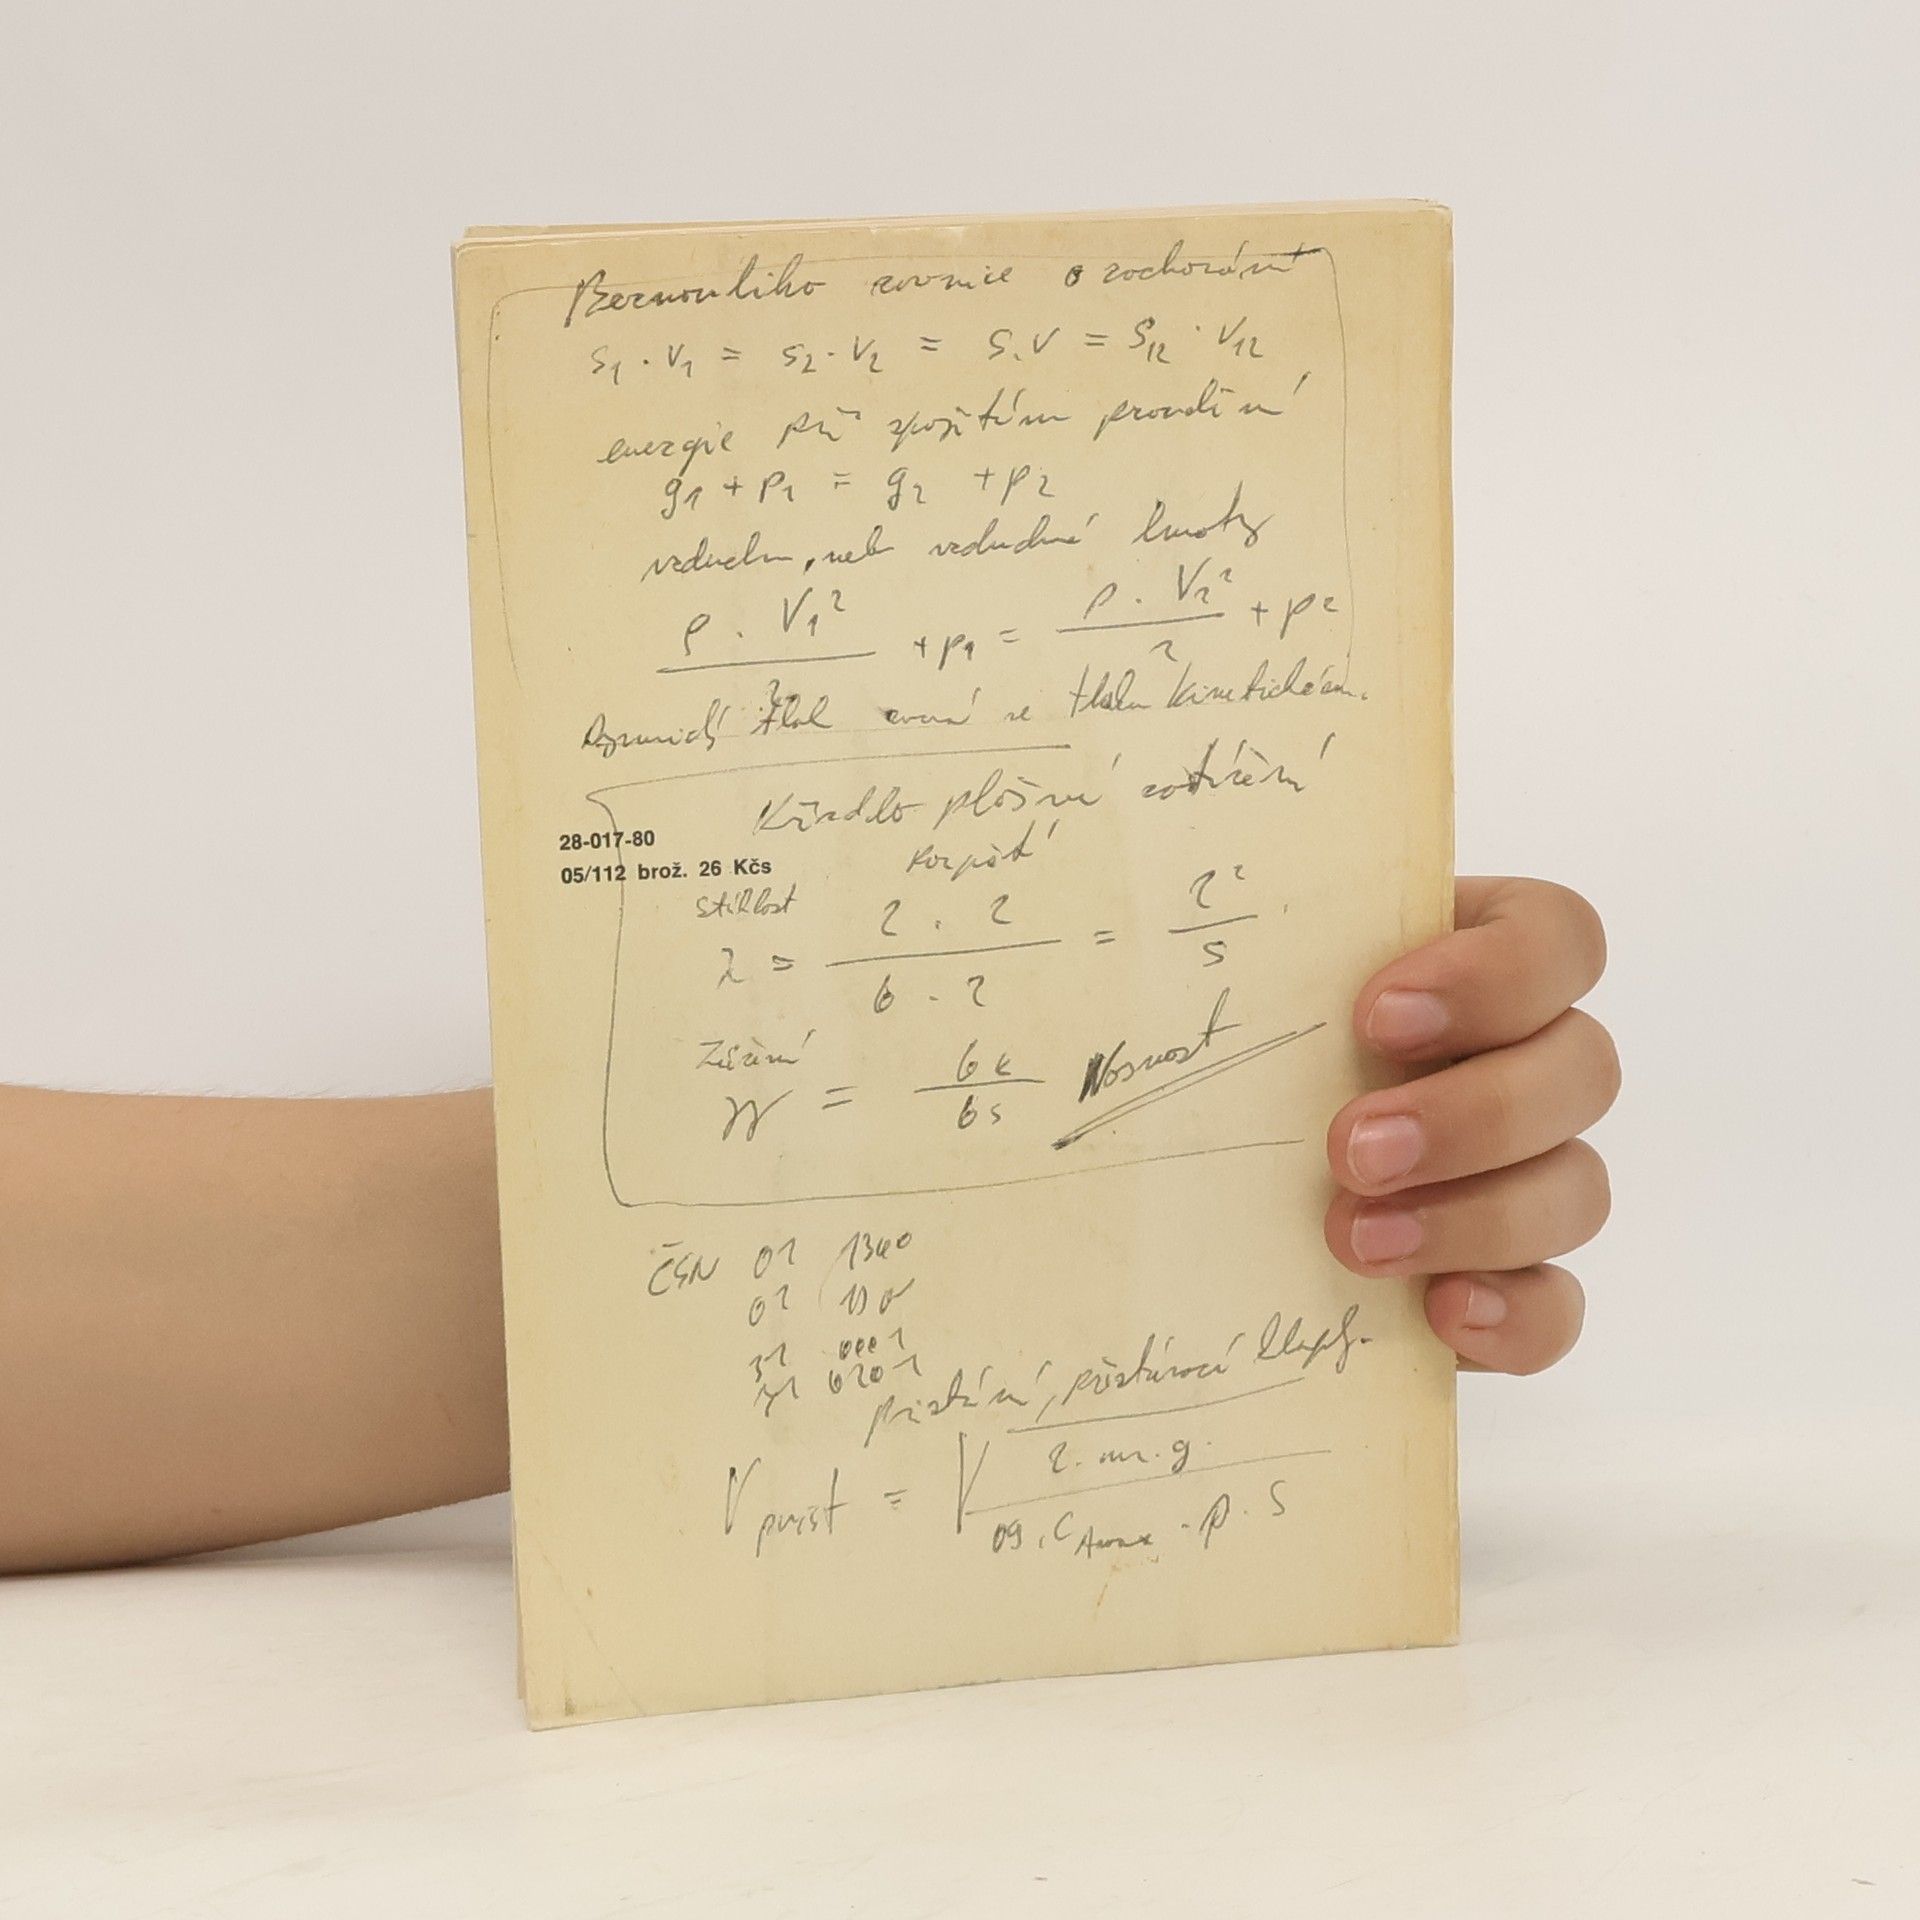 Bernouliho rovnice o zachování
S₁ · V₁ = S₂ · V₂ = S · V = S₁₂ · V₁₂
energie při spojitém proudění
g₁ + p₁ = g₂ + p₂
vzduchu, neb vzdušné hmoty
ρ · V₁² / 2 + p₁ = ρ · V₂² / 2 + p₂
Dynamický tlak rovná se tlaku kinetickém.
Křídlo plošné zatížení
28-017-80
Rozpětí
05/112 brož. 26 Kčs
Stíhlost
λ = 2 · 2 / 6 · 2 = 2² / S
Zúžení
= 6k / 6s Nosnost
ČSN 01 1340
01
31 0001
31 6201
Přistání, přistávací klapky.
V přist = √ 2 · m · g / 09 · C Amax · ρ · S